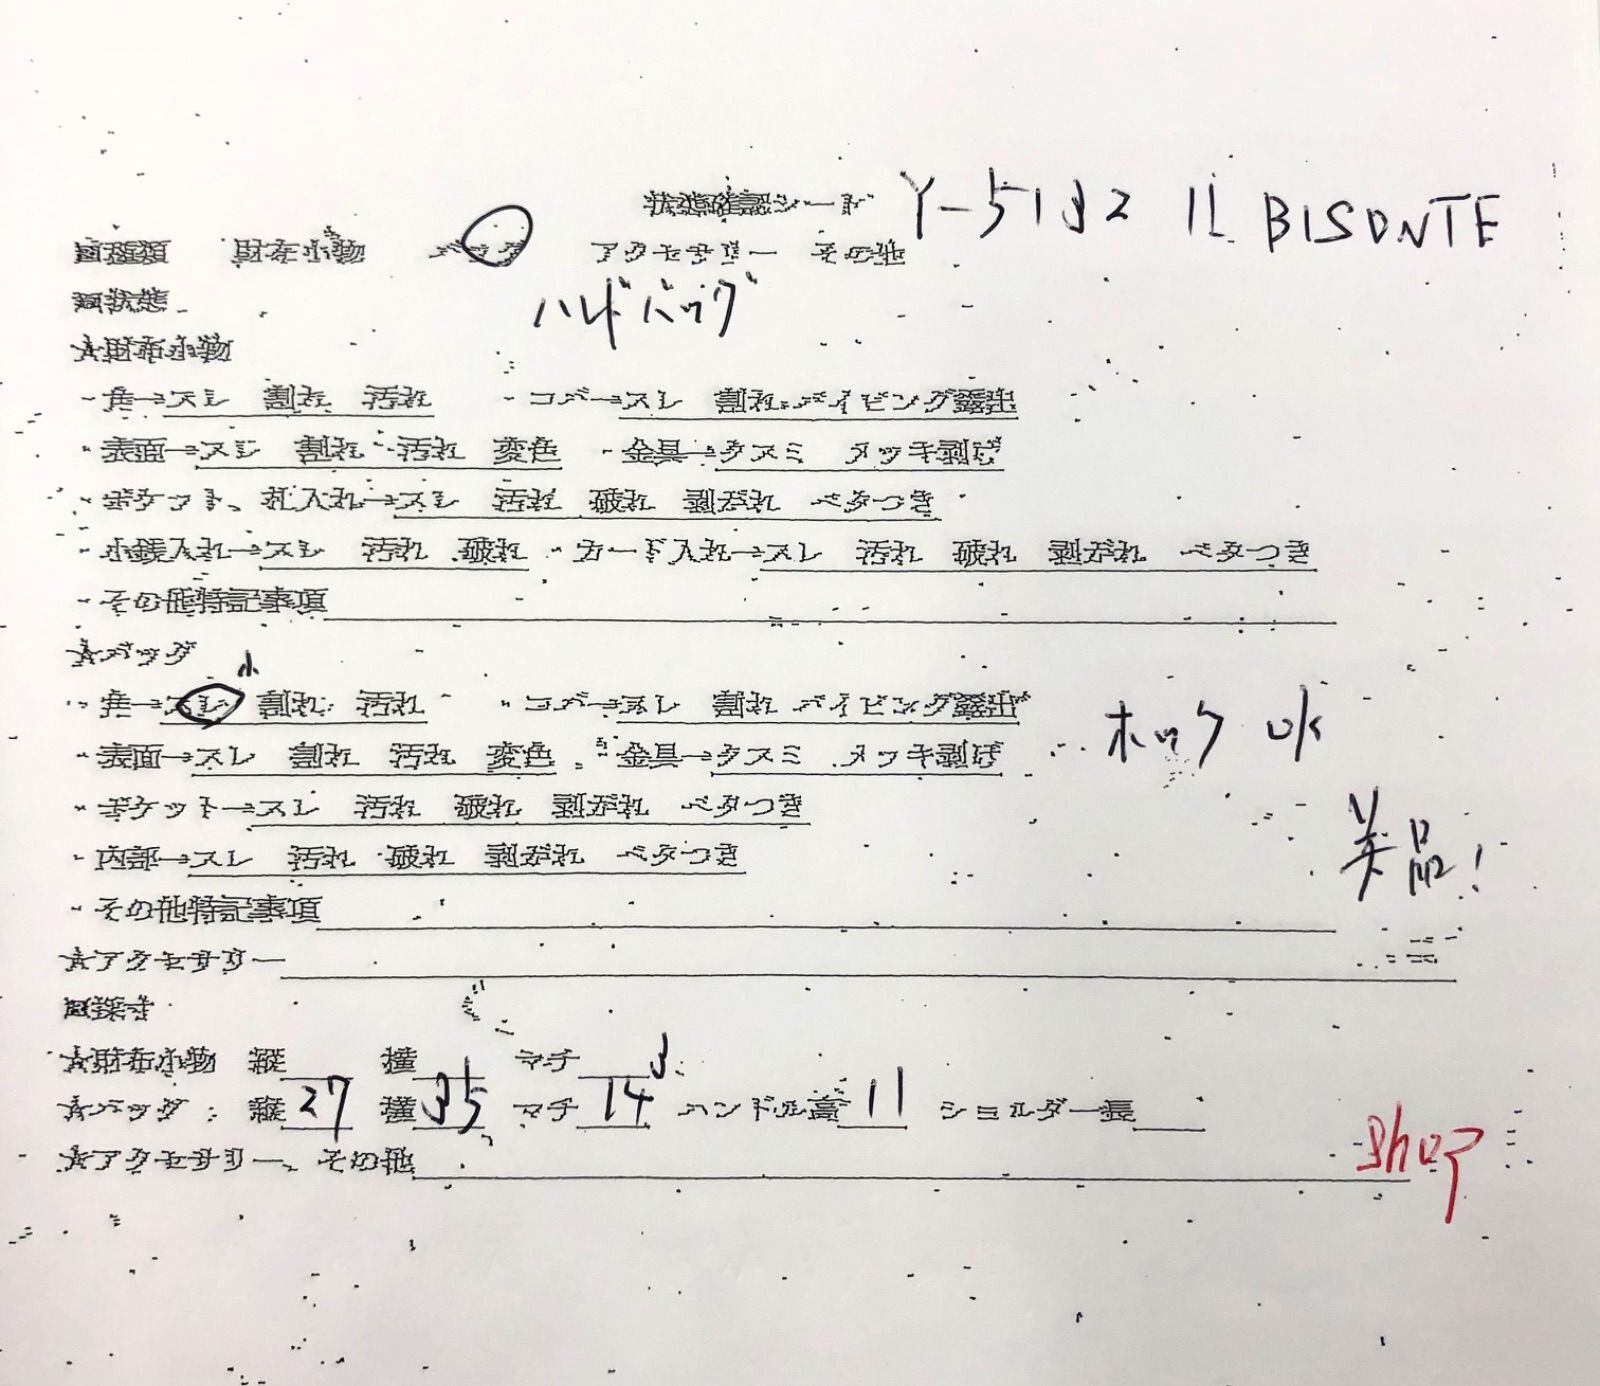 状態確認シート Y-5132 IL BISONTE
■種類 財布小物 バッグ アクセサリー その他
ハンドバッグ
■状態
★財布小物
・角→スレ 割れ 汚れ ・コバ→スレ 割れ パイピング露出
・表面→スレ 割れ 汚れ 変色 ・金具→クスミ メッキ剥げ
・ポケット、札入れ→スレ 汚れ 破れ 剥がれ ベタつき
・小銭入れ→スレ 汚れ 破れ ・カード入れ→スレ 汚れ 破れ 剥がれ ベタつき
・その他特記事項
★バッグ
小
・角→スレ 割れ 汚れ ・コバ→スレ 割れ パイピング露出
・表面→スレ 割れ 汚れ 変色 ・金具→クスミ メッキ剥げ ホック OK
・ポケット→スレ 汚れ 破れ 剥がれ ベタつき
・内部→スレ 汚れ 破れ 剥がれ ベタつき 美品!
・その他特記事項
★アクセサリー
■採寸
★財布小物 縦 横 マチ
★バッグ : 縦 27 横 35 マチ 14 ハンドル高 11 ショルダー長
★アクセサリー、その他 shop